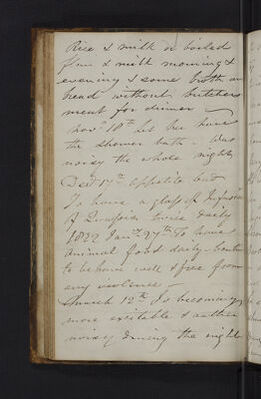 Rice & milk or boiled
flour & milk morning &
evening & some broth an
bread without butchers
meat for dinner
Novr 18th let her have
the shower bath - Was
noisy the whole night
Decr 17th Appetite bad
To have a glass of Infusion
of Quassia twice daily
1832 Jany 27th To have
animal food daily - continues
to behave well & free from
any violence -
March 12th Is becoming
more excitable & rather
noisy during the night